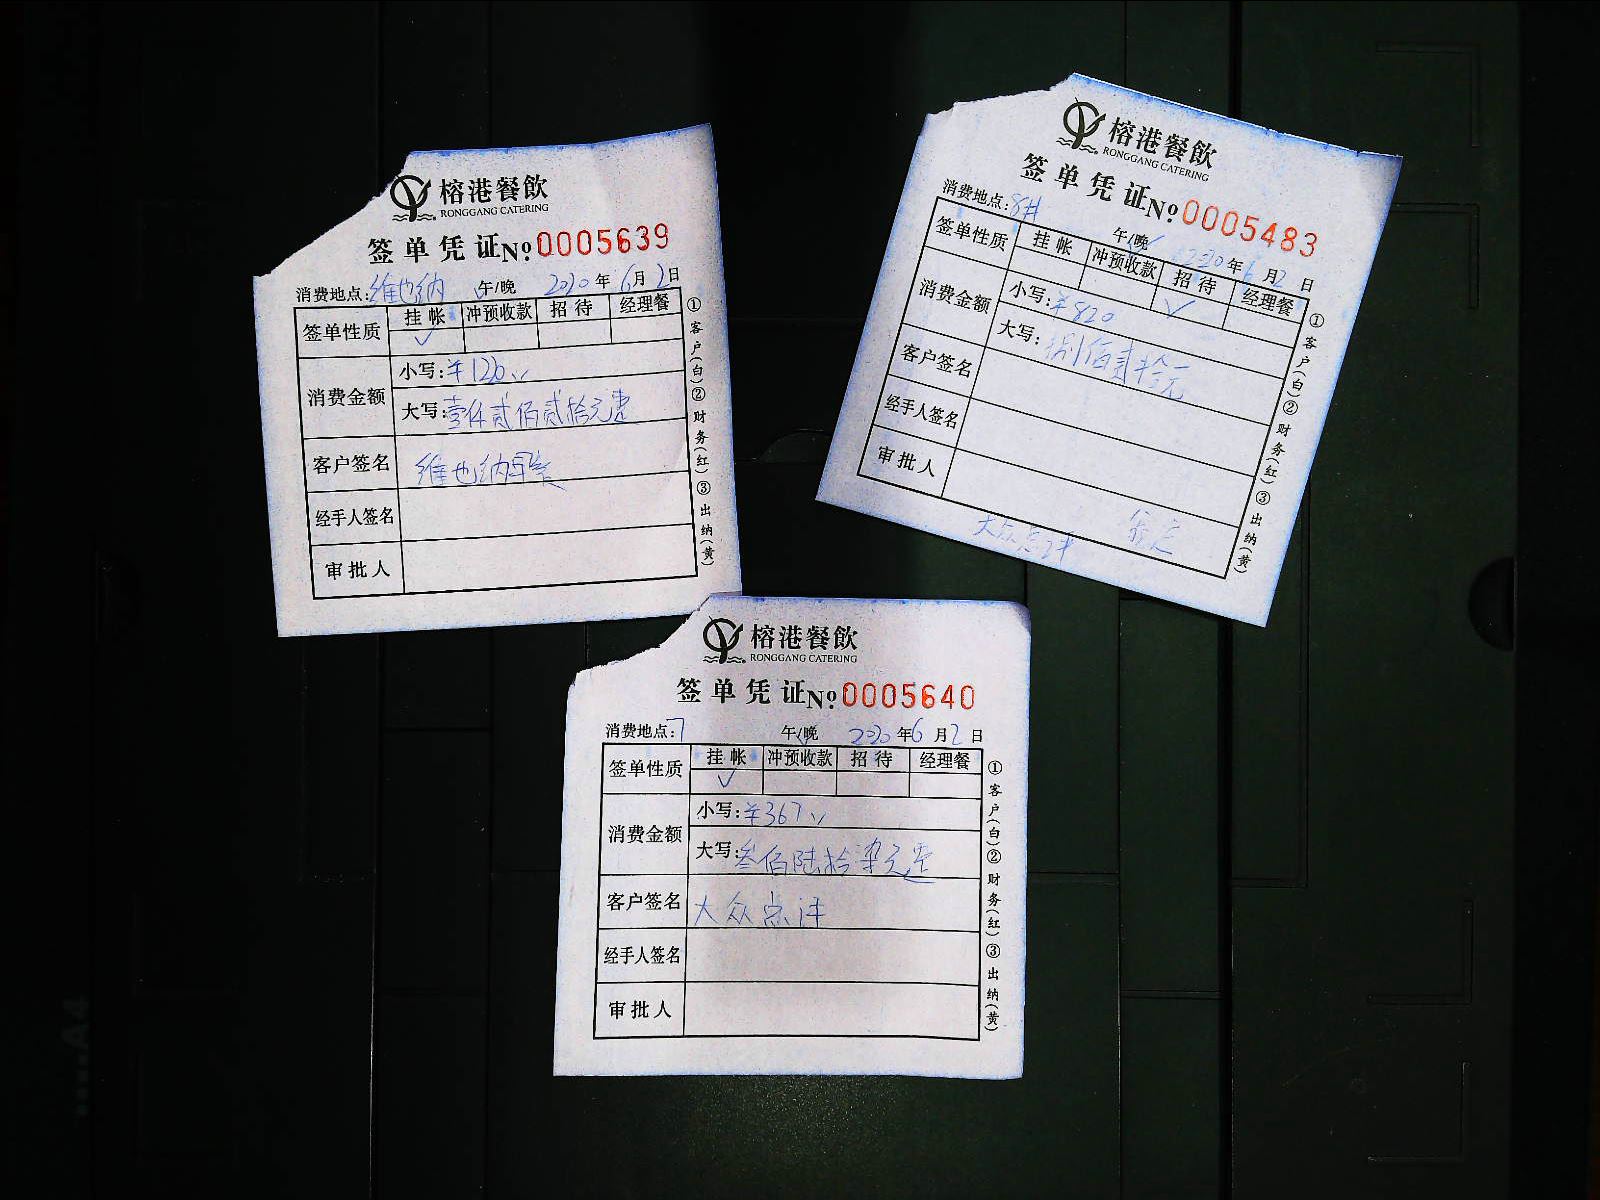 榕港餐飲
RONGGANG CATERING
签单凭证 №0005639
消费地点:维也纳 午/晚 2020年6月2日
签单性质 挂帐 冲预收款 招待 经理餐
✓
消费金额 小写:¥1220
大写:壹仟贰佰贰拾元整
客户签名 维也纳
经手人签名
审批人
①客户(白)②财务(红)③出纳(黄)
榕港餐飲
RONGGANG CATERING
签单凭证 №0005483
消费地点:8# 午/晚 2020年6月2日
签单性质 挂帐 冲预收款 招待 经理餐
✓
消费金额 小写:¥820
大写:捌佰贰拾元
客户签名
经手人签名
审批人
大众点评
①客户(白)②财务(红)③出纳(黄)
榕港餐飲
RONGGANG CATERING
签单凭证 №0005640
消费地点:7 午/晚 2020年6月2日
签单性质 挂帐 冲预收款 招待 经理餐
✓
消费金额 小写:¥367
大写:叁佰陆拾柒元整
客户签名 大众点评
经手人签名
审批人
①客户(白)②财务(红)③出纳(黄)
A4